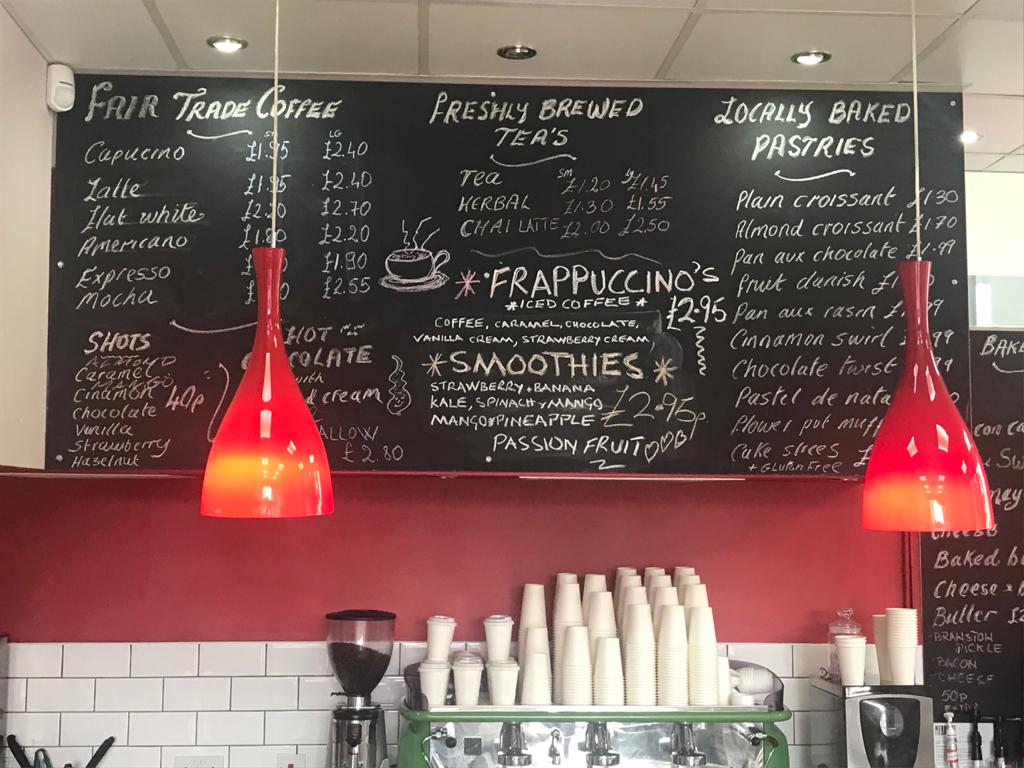 FAIR TRADE COFFEE
SM LG
Capucino £1.95 £2.40
Latte £1.95 £2.40
Flat white £2.70
Americano £2.20
Expresso £1.90
Mocha £2.55
SHOTS
ALMOND
Caramel
Cinamon
chocolate
Vanilla
Strawberry
Hazelnut
40p
HOT
cream
£2.80
FRESHLY BREWED
TEA'S
SM
Tea £1.20 £1.45
HERBAL £1.30 £1.55
CHAI LATTE £2.00 £2.50
*FRAPPUCCINO'S
*ICED COFFEE*
£2.95
COFFEE, CARAMEL, CHOCOLATE,
VANILLA CREAM, STRAWBERRY CREAM
*SMOOTHIES*
STRAWBERRY+BANANA
KALE, SPINACH+MANGO
MANGO+PINEAPPLE
£2.95p
PASSION FRUIT
LOCALLY BAKED
PASTRIES
Plain croissant £1.30
Almond croissant £1.70
Pan aux chocolate
fruit danish
Pan aux rasin
Cinnamon swirl
Chocolate twist
Pastel de nata
Flower pot
Cake slices
+ Gluten Free
Cheese
Baked
Cheese +
Butter
-BRANSTON
PICKLE
-BACON
-CHEESE
50p